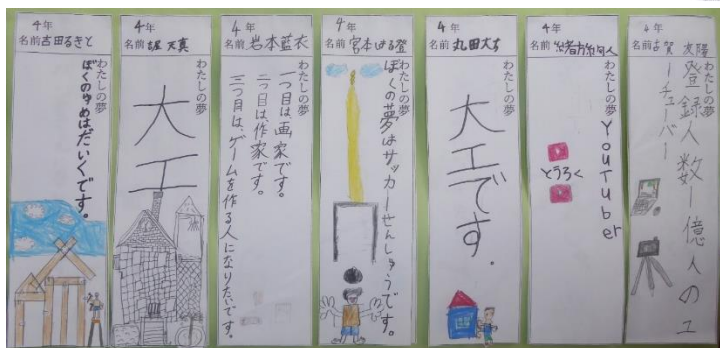 4年
名前 吉田るきと
わたしの夢
ぼくのゆめはだいくです。
4年
名前 天真
わたしの夢
大工
4年
名前 岩本藍衣
わたしの夢
一つ目は画家です。
二つ目は作家です。
三つ目は、ゲームを作る人になりたいです。
4年
名前 宮本はる登
わたしの夢
ぼくの夢はサッカーせんしゅうです。
4年
名前 丸田大
わたしの夢
大工です。
4年
名前
わたしの夢
YouTuber
とうろく
4年
名前 古賀
わたしの夢
登録人数一億人のユ
ーチューバー